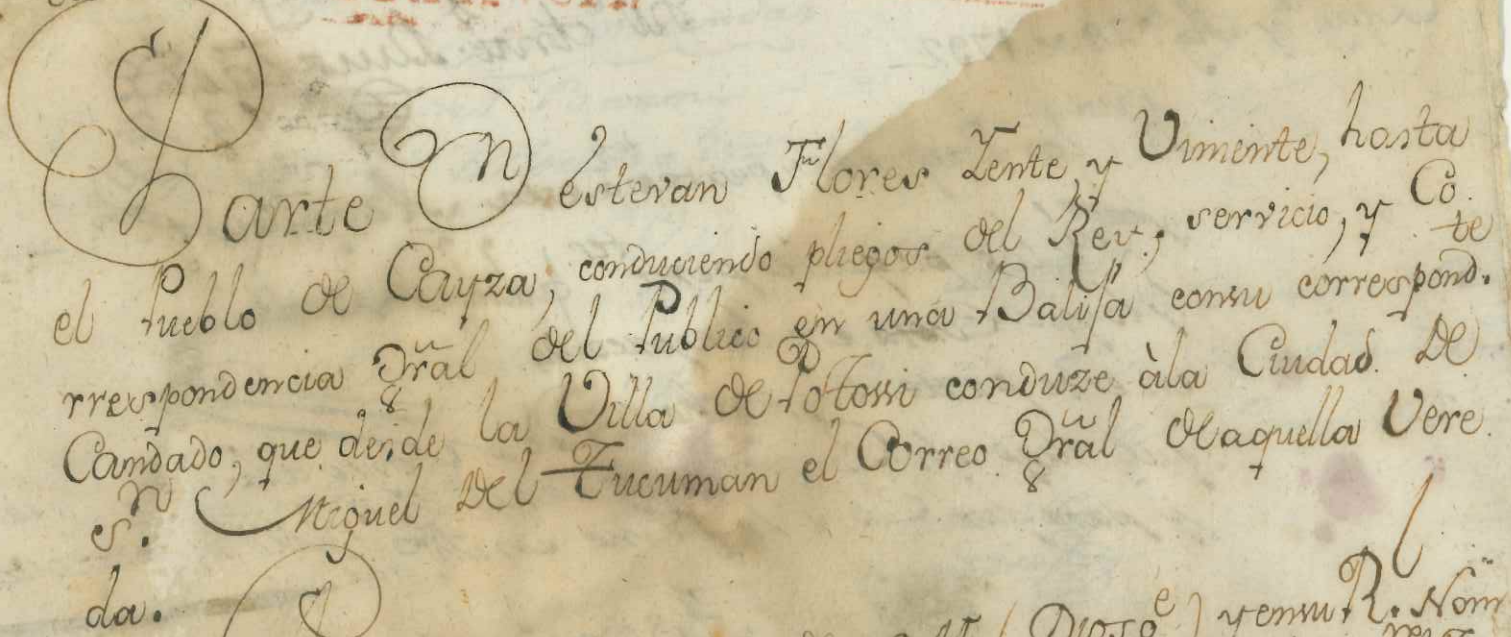 Parte Dn estevan Flores Yente, y Viniente, hasta
el Pueblo de Cayza, conduciendo pliegos del Rey, servicio, y Co-
rrespondencia Gral del Publico en una Balisa consu correspond.te
Candado, que desde la Villa de Potossi conduze àla Ciudad. De
Sn. Miguel Del Tucuman el Correo Gral deaquella Vere-
da.
yensu Rl. Nom